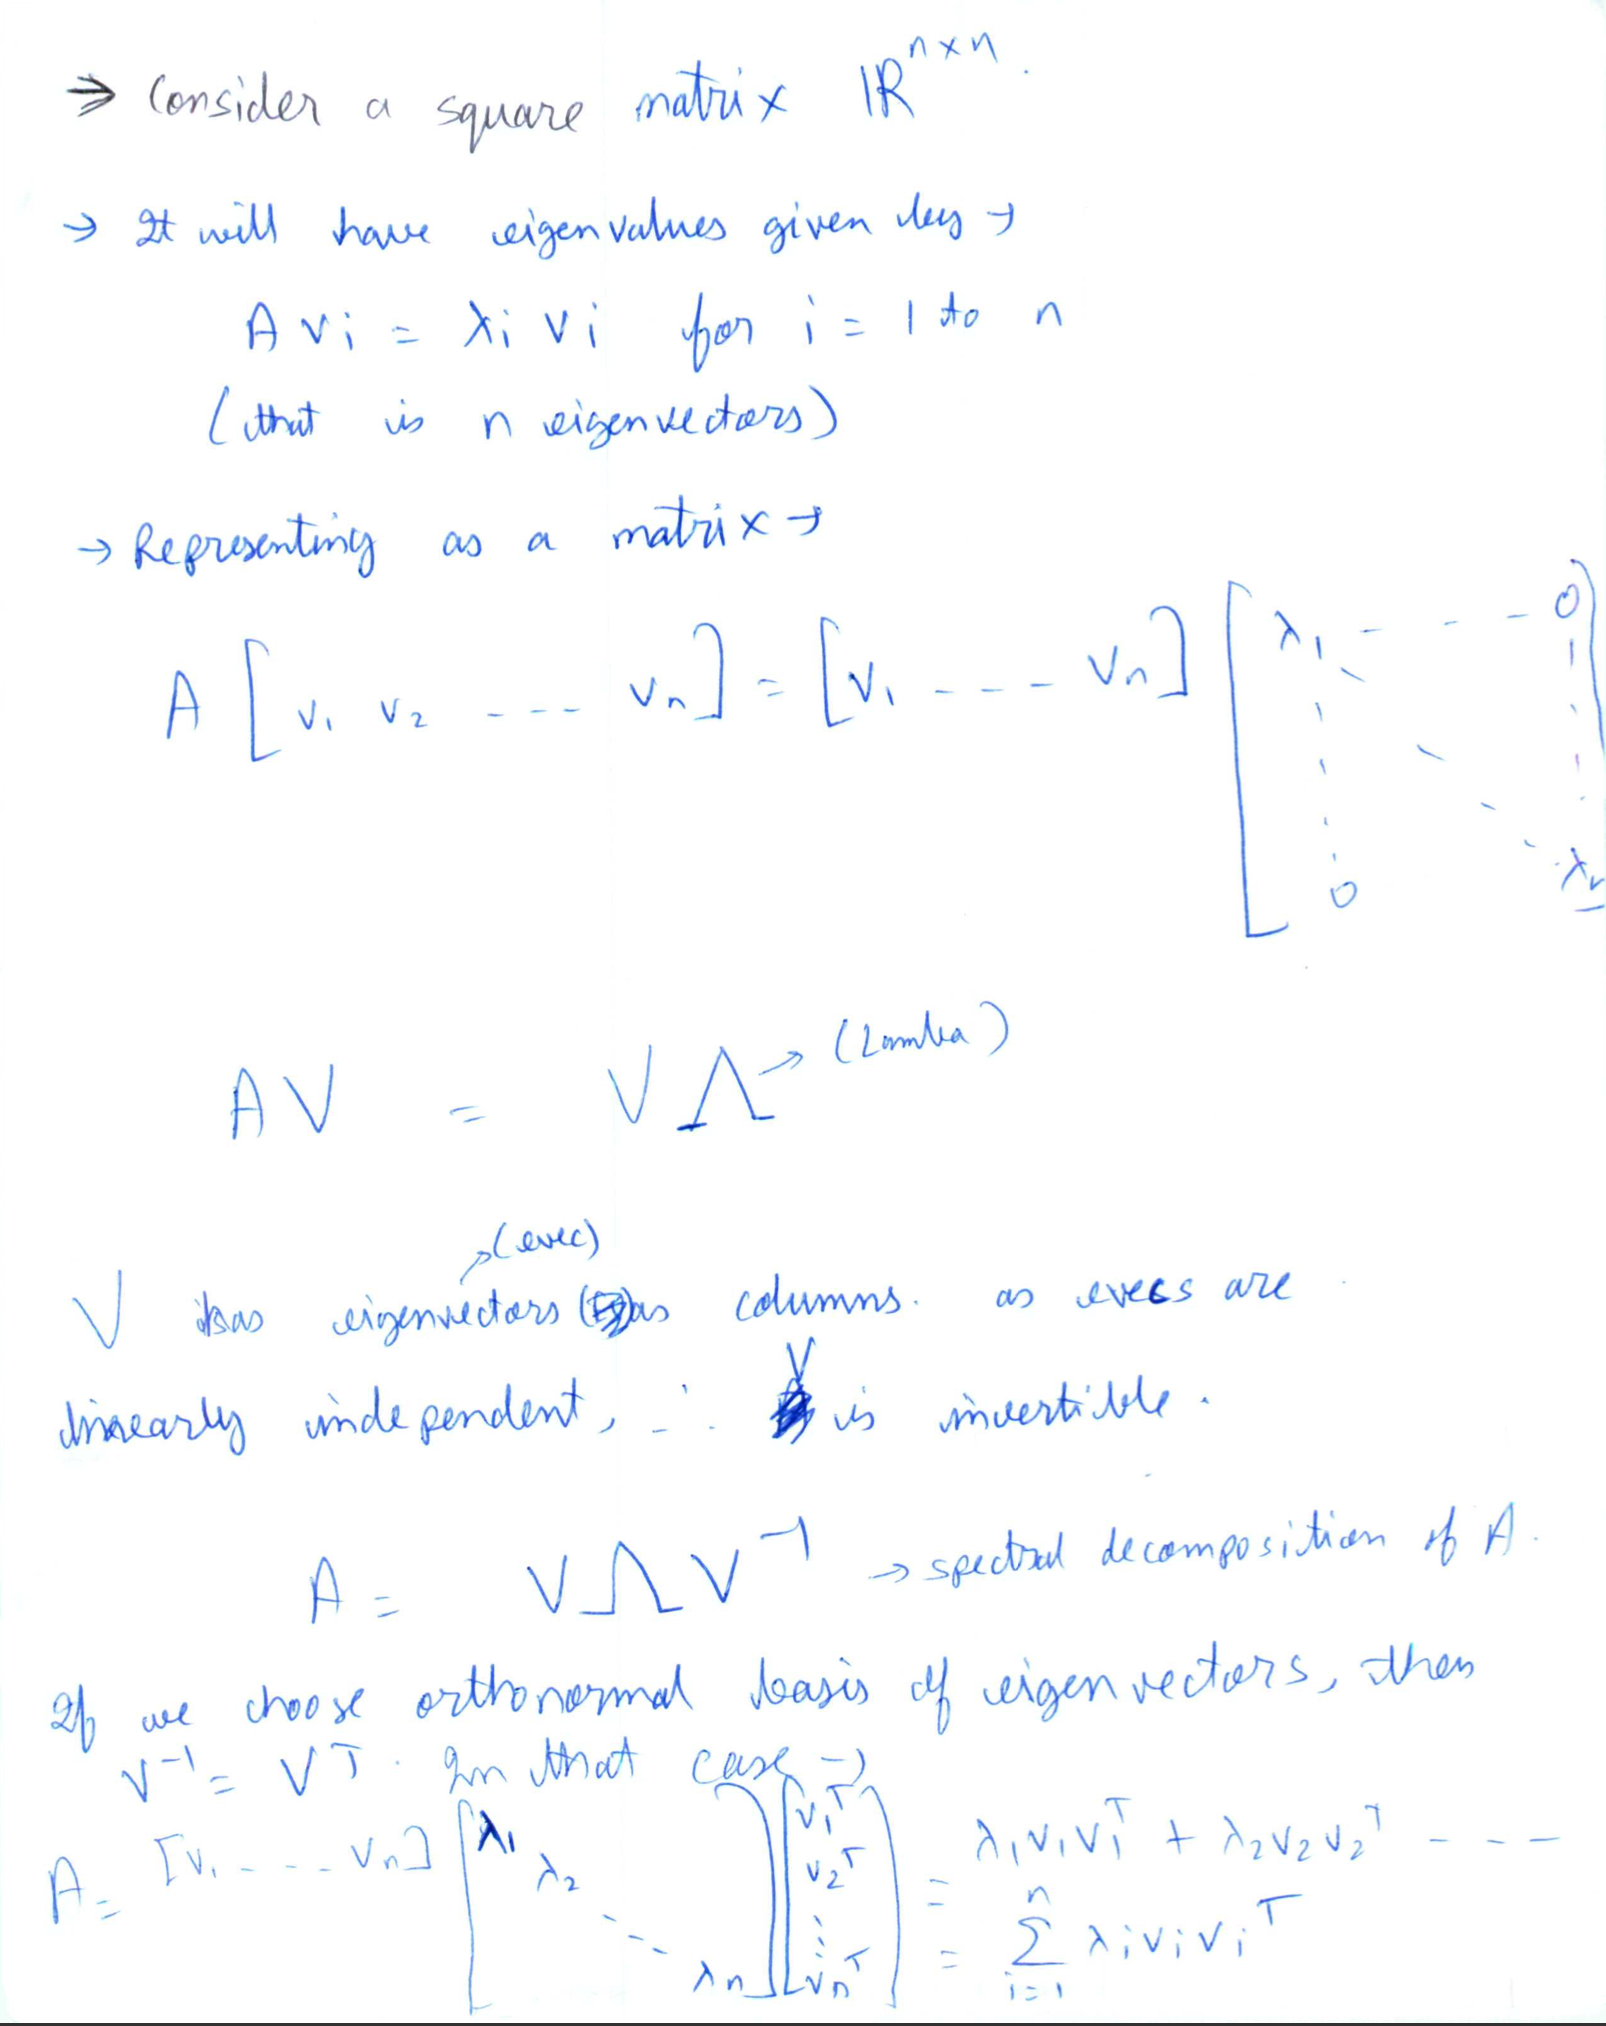 ⇒ Consider a square matrix ℝ^{n×n}.
→ It will have eigenvalues given by →
A vi = λi vi for i = 1 to n
(that is n eigenvectors)
→ Representing as a matrix →
A [v1 v2 --- vn] = [v1 ---- vn] [λ1 --- 0 ⋮ ⋱ ⋮ 0 λn]
AV = VΛ → (Lamba)
→ (evec)
V has eigenvectors as columns. as evecs are
linearly independent, ∴ V is invertible.
A = VΛV^{-1} → spectral decomposition of A.
If we choose orthonormal basis of eigenvectors, then
V^{-1} = V^T. In that case →
A = [v1 ---- vn] [λ1 λ2 ⋱ λn] [v1^T v2^T ⋮ vn^T] = λ1v1v1^T + λ2v2v2^T ---
= Σ_{i=1}^{n} λivivi^T